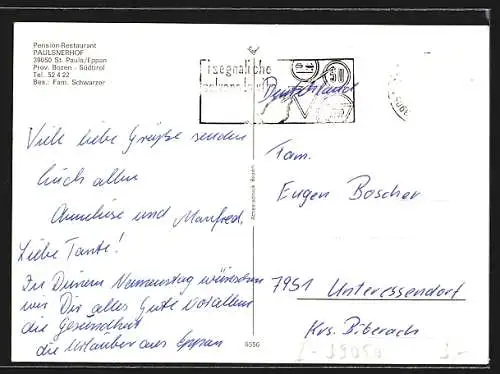 Pension-Restaurant
PAULSNERHOF
39050 St. Pauls/Eppan
Prov. Bozen - Südtirol
Tel. 52 4 22
Bes.: Fam. Schwarzer
I segnali che
Deutschland
Viele liebe Grüße senden
Euch allen
Anneliese und Manfred.
Liebe Tante!
Zu Deinem Namenstag wünschen
wir Dir alles Gute vor allem
die Gesundheit
die Urlauber aus Eppan
Fam.
Eugen Boscher
7951 Unteressendorf
Krs. Biberach
6556